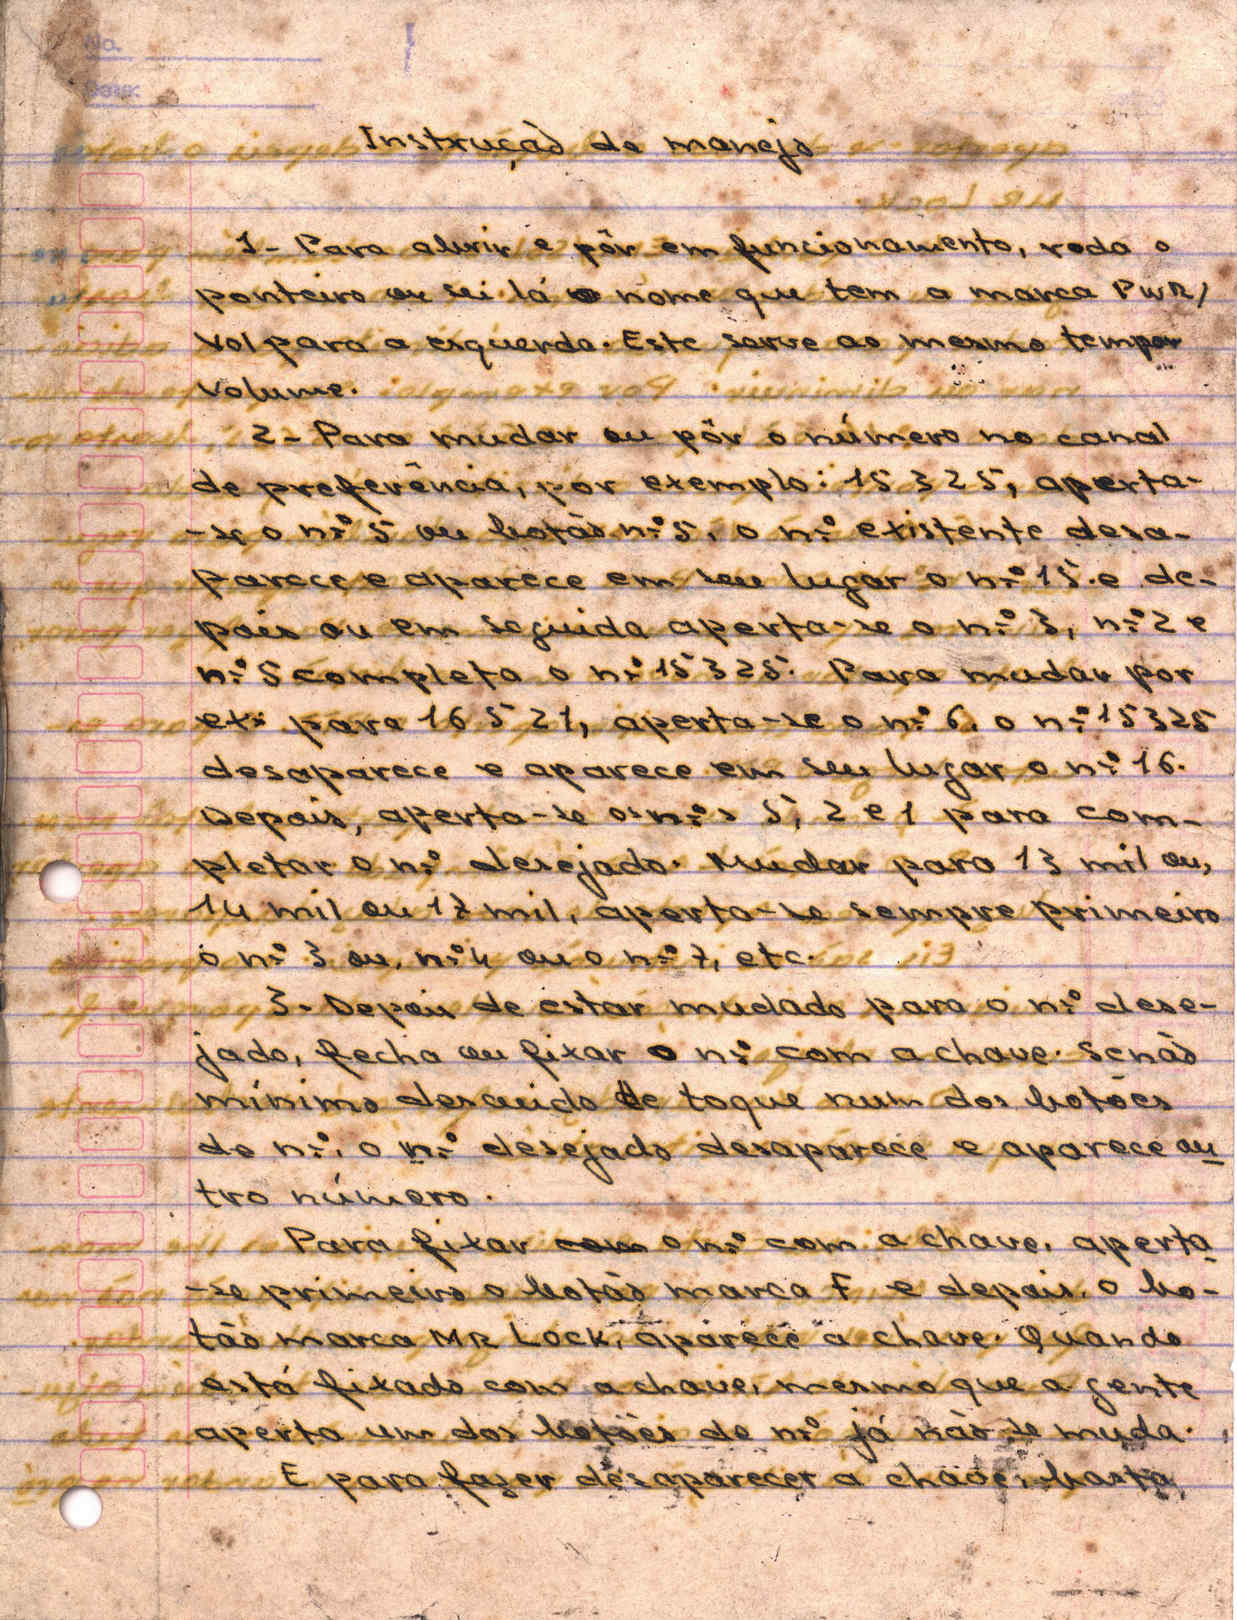 No.
Date:
Instrução de manejo
1- Para abrir e pôr em funcionamento, roda o
ponteiro ou sei lá o nome que tem a marca PWR/
Vol para a esquerda. Este serve ao mesmo tempo
volume.
2- Para mudar ou pôr o número no canal
de preferência, por exemplo: 15 3 2 5, aperta-
-se o nº 5 ou botão nº 5, o nº existente desa-
parece e aparece em seu lugar o nº 15. e de-
pois ou em seguida aperta-se o nº 3, nº 2 e
nº 5 completa o nº 15 3 2 5. Para mudar por
ex: para 16 5 2 1, aperta-se o nº 6, o nº 15325
desaparece e aparece em seu lugar o nº 16.
Depois, aperta-se os nºs 5, 2 e 1 para com-
pletar o nº desejado. Mudar para 13 mil ou,
14 mil ou 17 mil, aperta-se sempre primeiro
o nº 3 ou, nº 4 ou o nº 7, etc.
3- Depois de estar mudado para o nº dese-
jado, fecha ou fixar o nº com a chave. Senão
mínimo descuido de toque num dos botões
de nº, o nº desejado desaparece e aparece ou
tro número.
Para fixar com o nº com a chave, aperta
-se primeiro o botão marca F e depois, o bo-
tão marca MR Lock, aparece a chave. Quando
está fixado com a chave, mesmo que a gente
aperta um dos botões de nº já não se muda.
E para fazer desaparecer a chave, basta